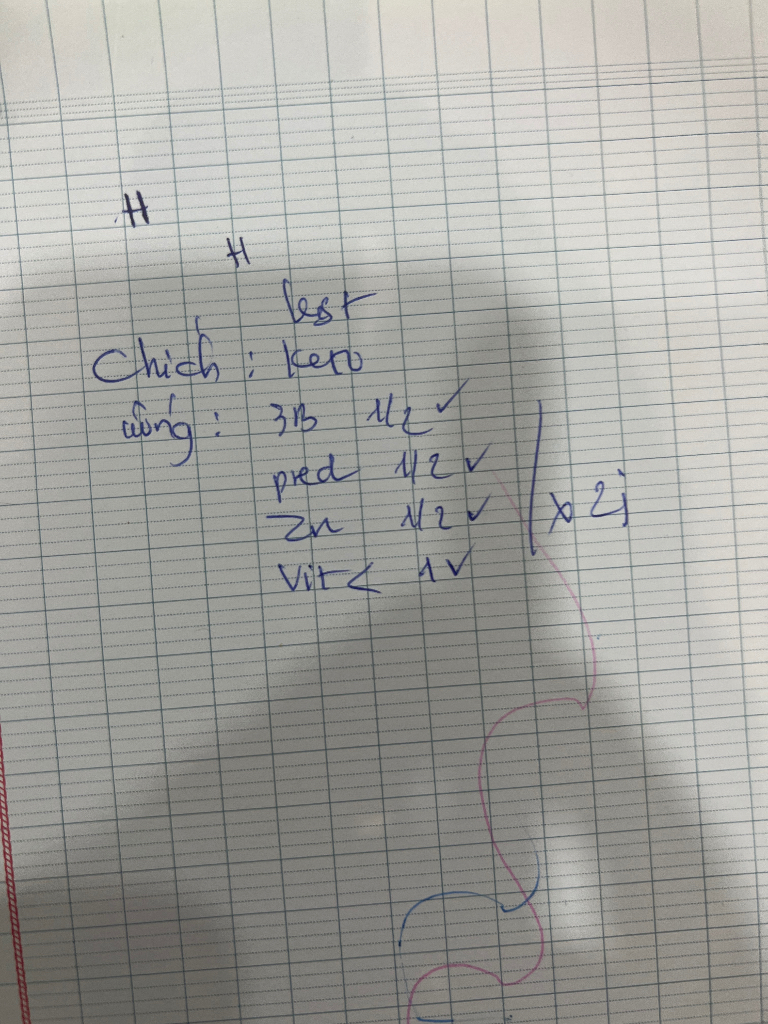 H
H
test
Chích : Kero
uống : 3B 1/2 ✓
pred 1/2 ✓
Zn 1/2 ✓ x 2j
Vit C 1 ✓